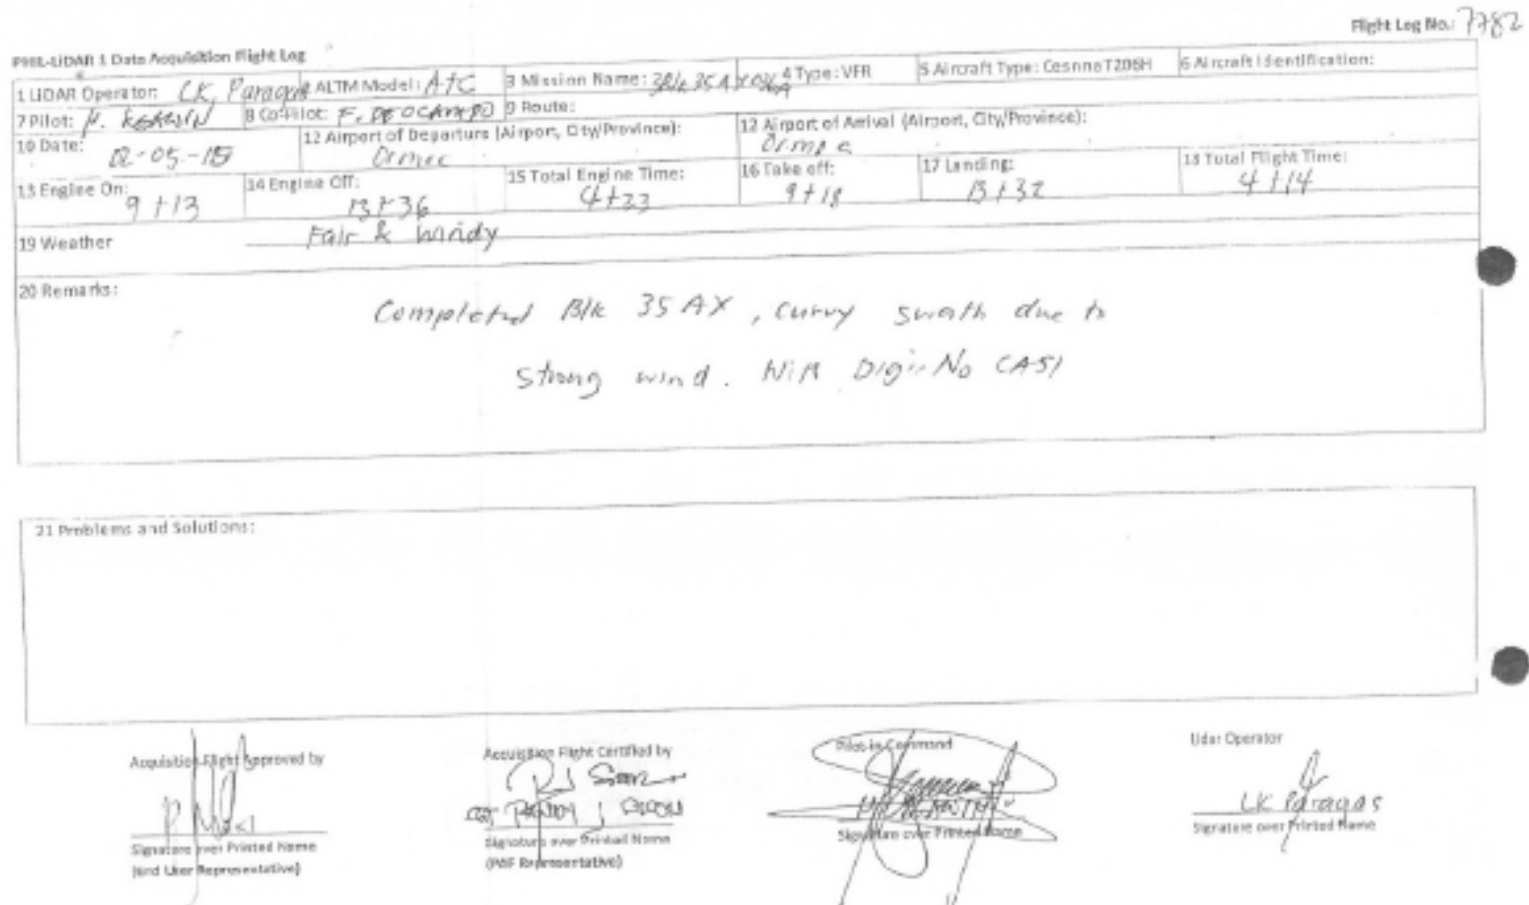 Flight Log No.: 7782
PHIL-LiDAR 1 Data Acquisition Flight Log
1 LiDAR Operator: LK Paragas 2 ALTM Model: 3 Mission Name: 4 Type: VFR 5 Aircraft Type: Cesnna T206H 6 Aircraft Identification:
7 Pilot: 8 Co-Pilot: 9 Route:
10 Date: 02-05-15 12 Airport of Departure (Airport, City/Province): Ormoc 12 Airport of Arrival (Airport, City/Province): Ormoc
13 Engine On: 9+13 14 Engine Off: 13+36 15 Total Engine Time: 4+23 16 Take off: 9+18 17 Landing: 13+32 18 Total Flight Time: 4+14
19 Weather Fair & windy
20 Remarks:
Completed Blk 35 AX, curvy swath due to
strong wind. No CASI
21 Problems and Solutions:
Acquisition Flight Approved by
Signature over Printed Name
(End User Representative)
Acquisition Flight Certified by
Signature over Printed Name
(PAF Representative)
Pilot-in-Command
Signature over Printed Name
Lidar Operator
LK Paragas
Signature over Printed Name